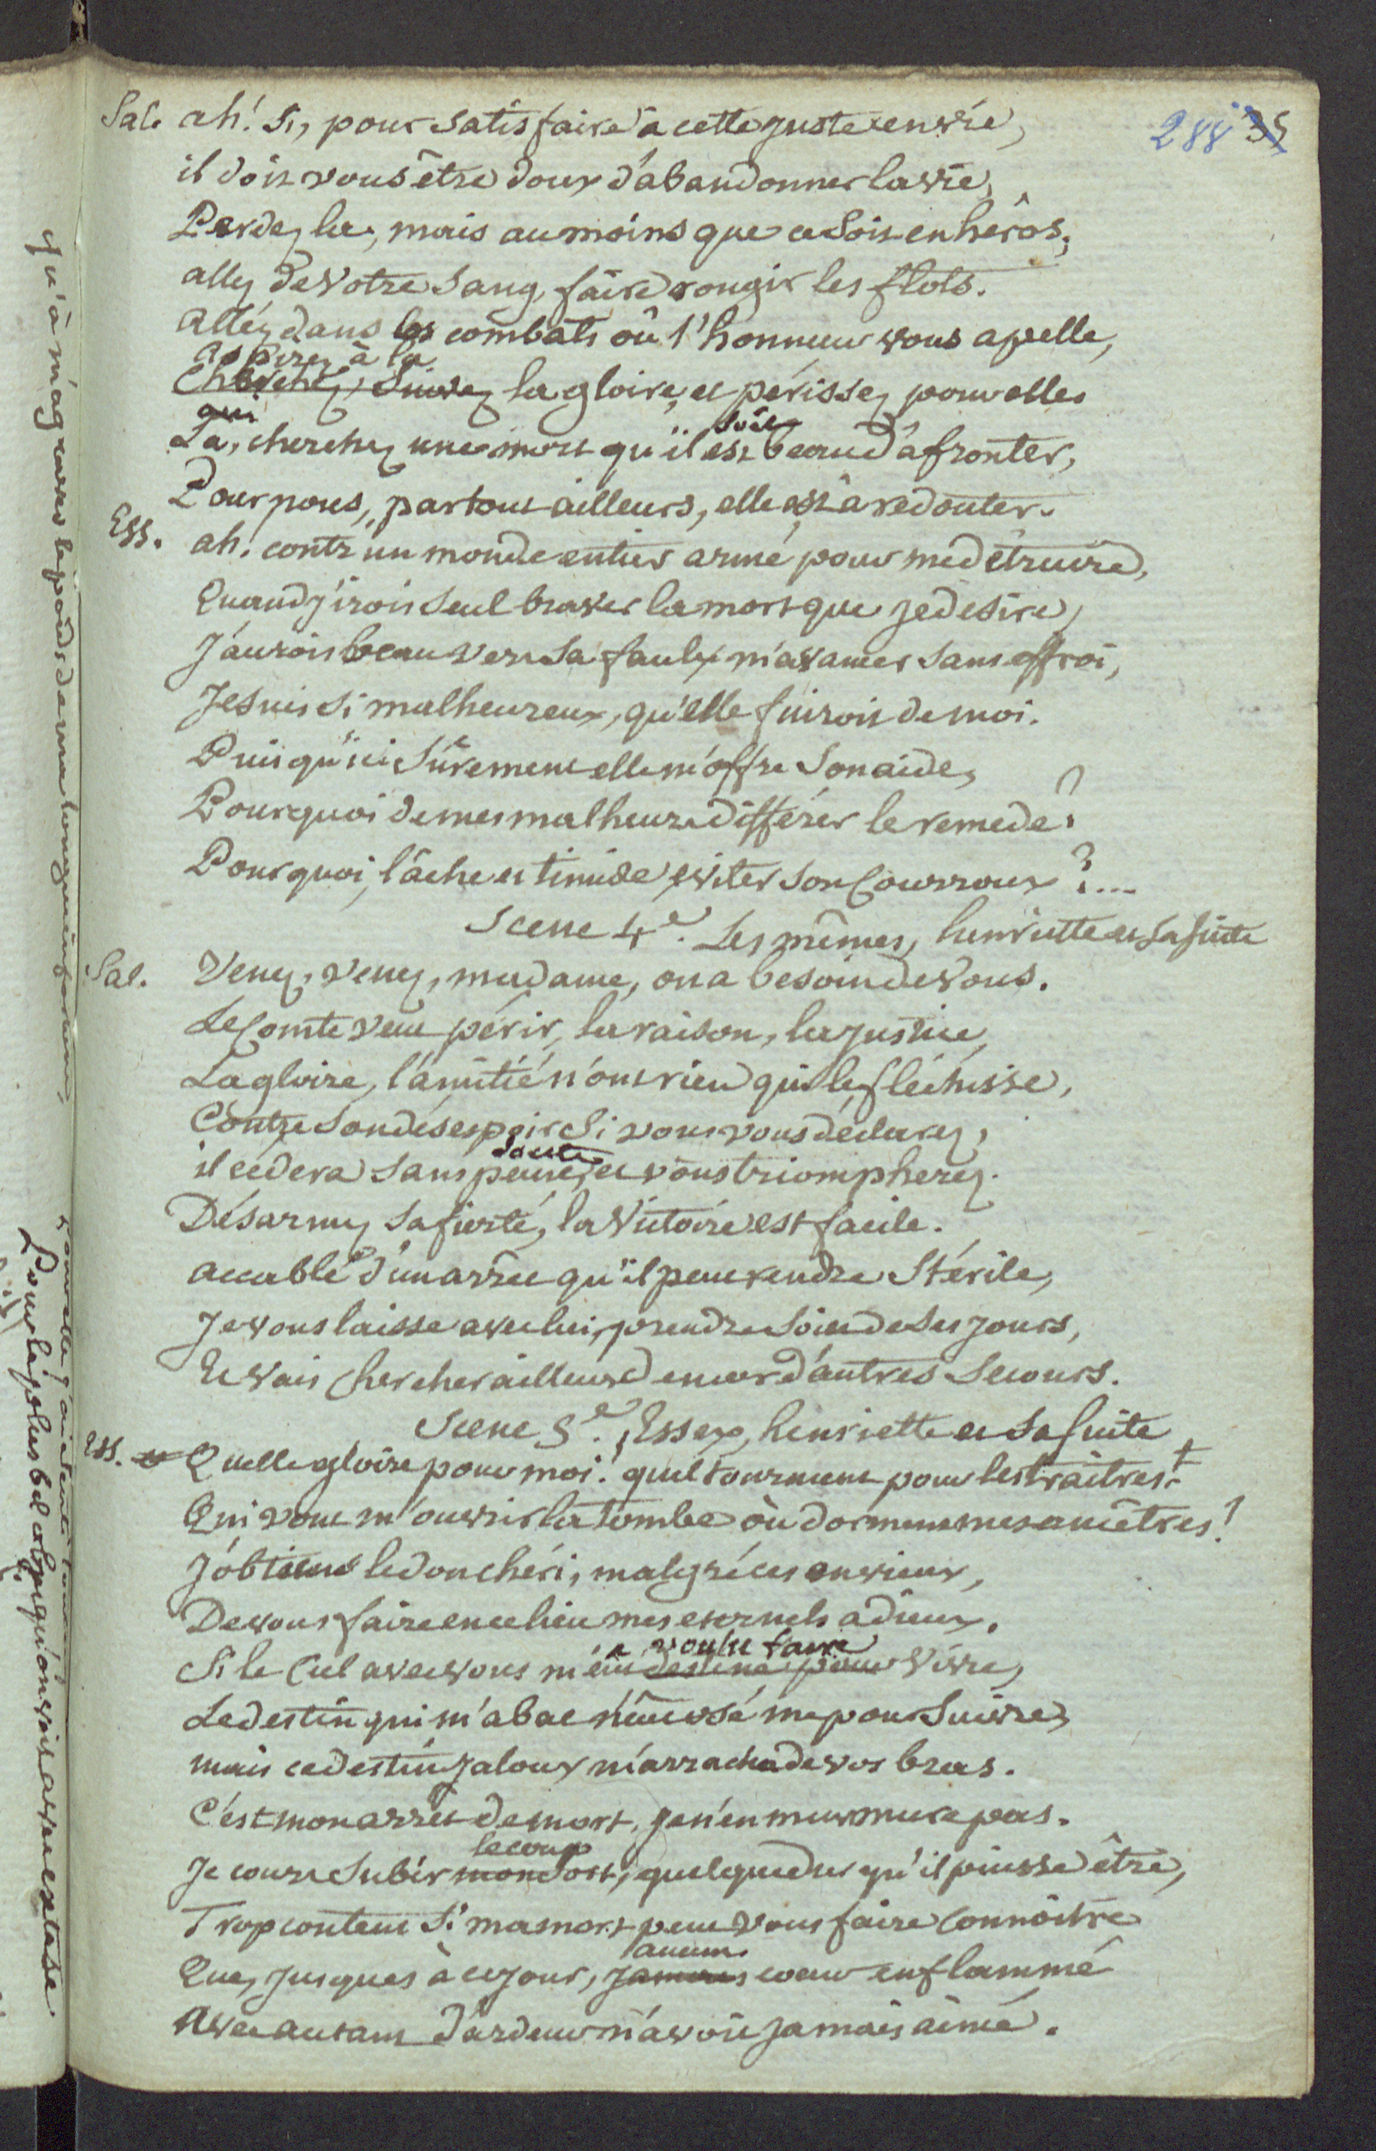 288 35
Sal. ah! si, pour satisfaire à cette juste envie,
il doit vous être doux d'abandonner la vie,
Perdez la, mais au moins que ce soit en hêros;
allez de votre sang, faire rougir les flots.
Alléz dans les combats où l'honneur vous apelle,
aspirez à la
Cherchez, suivez la gloire, et périssez pour elle.
qui soit
Là, cherchez une mort qu'il est beau d'afronter,
Pour nous, partout ailleurs, elle est à redouter.
Ess. ah! contr'un monde entier armé pour me détruire,
Quand j'irois seul braver la mort que je desire,
J'aurois beau vers sa faulx m'avancer sans effroi,
Je suis si malheureux, qu'elle fuiroit de moi.
Puisqu'ici sûrement elle m'offre son aide,
Pourquoi de mes malheurs différer le remede?
Pourquoi, lâche et timide, éviter son Courroux?....
Scene 4e. Les mêmes, henriette et sa suite
Sal. Venez, venez, madame, on a besoin de vous.
Le Comte veut périr, la raison, la justice,
La gloire, l'amitié n'ont rien qui le fléchisse,
Contre son désespoir si vous vous déclarez,
doute
il cédera sans peine, et vous triompherez.
Désarmez sa fierté, la victoire est facile.
accablé d'un arrêt qu'il peut rendre stérile,
Je vous laisse avec lui, prendre soin de ses jours,
Et vais chercher ailleurs encor d'autres secours.
Scene 5e. Essex, henriette et sa suite
Ess. Quelle gloire pour moi! quel tourment pour les traitres +
Qui vont m'ouvrir la tombe où dorment mes ancêtres!
J'obtiens le don chéri, malgré ces envieux,
De vous faire en ce lieu mes eternels adieux.
a voulu faire
Si le Ciel avec vous m'eût destiné pour vivre,
Le destin qui m'abat n'eût osé me poursuivre,
mais ce destin jaloux m'arracha de vos bras.
C'est mon arrêt de mort, je n'en murmure pas.
le coup
Je cours subir mon sort, quelque dur qu'il puisse être,
Trop content si ma mort peut vous faire connoitre
aucun
Que, jusques à ce jour, jamais coeur enflammé
Avec autant d'ardeur n'avoit jamais aimé.